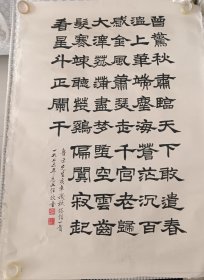 曾驚秋肅臨天下敢遣春
溫上筆端塵海蒼茫沉百
感金風蕭瑟走千官老歸
大澤菰蒲盡夢墜空雲齒
髮寒竦聽荒雞偏闃寂起
看星斗正闌干
魯迅
一九七